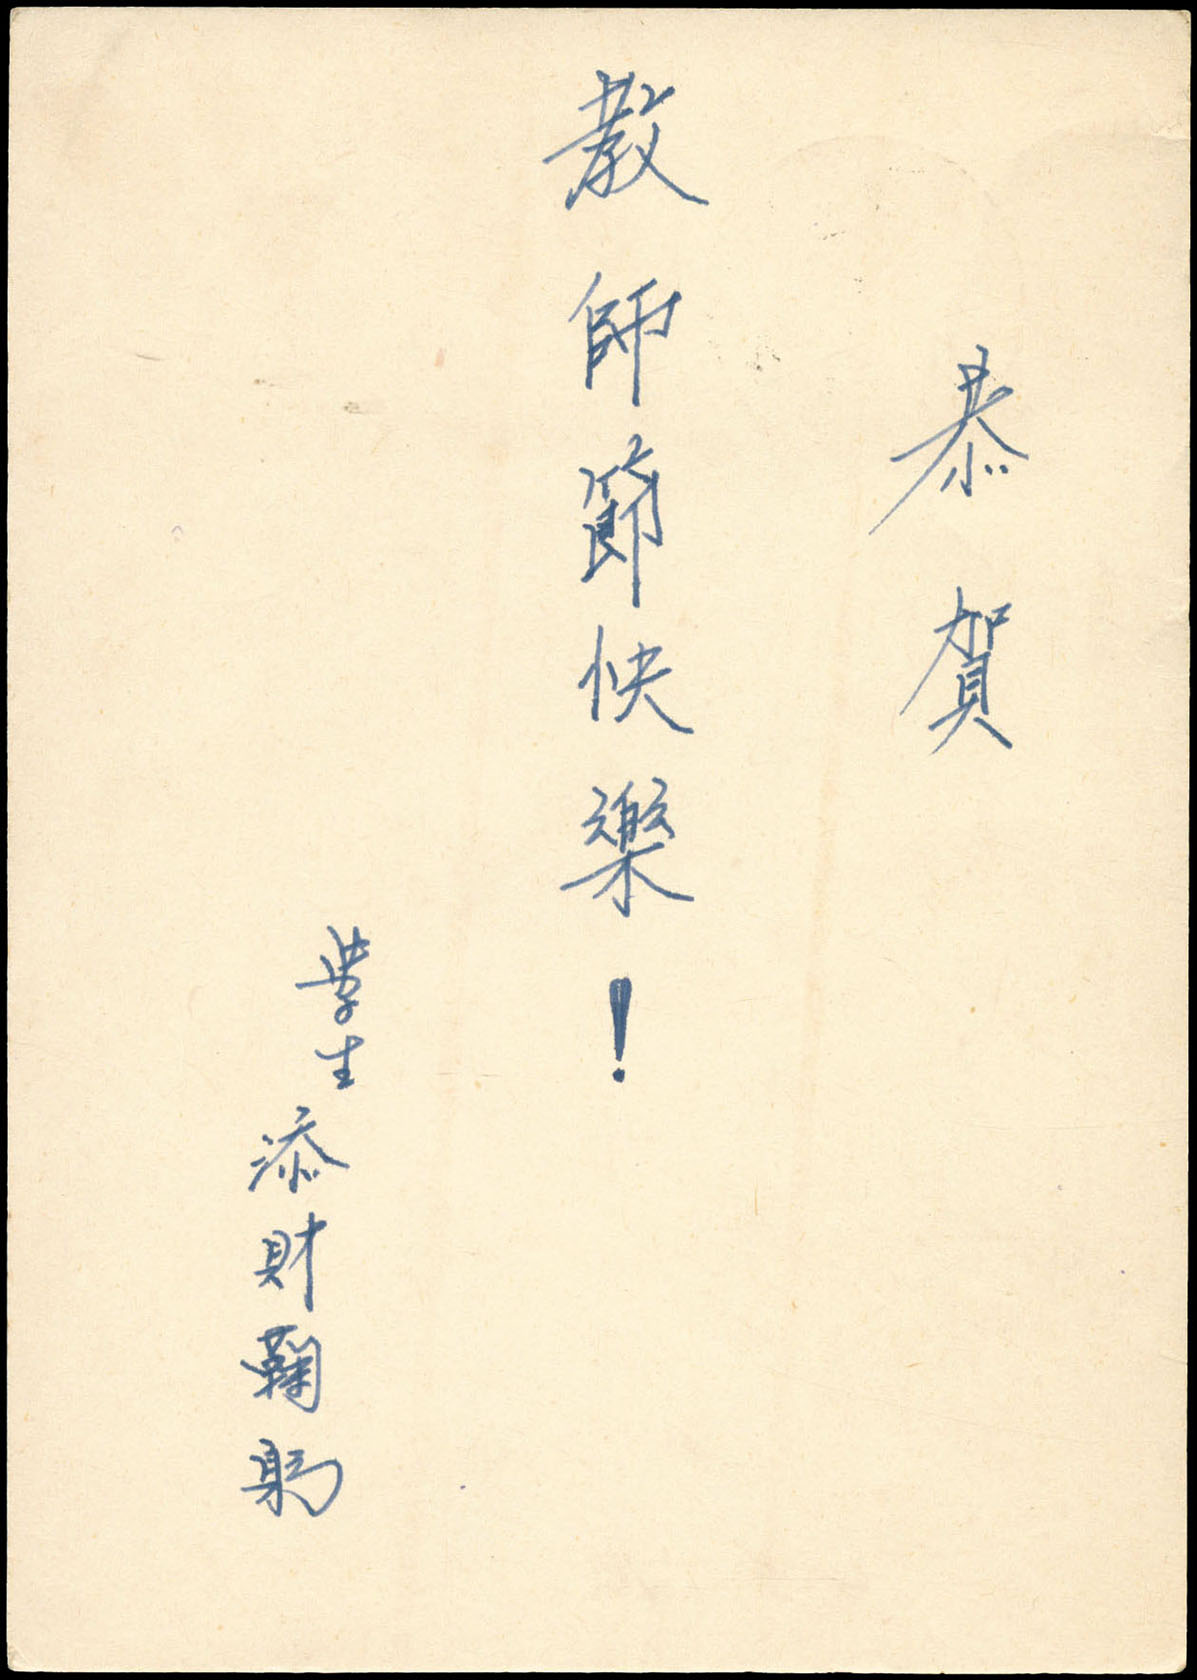 恭賀
教師節快樂！
學生
添財鞠躬